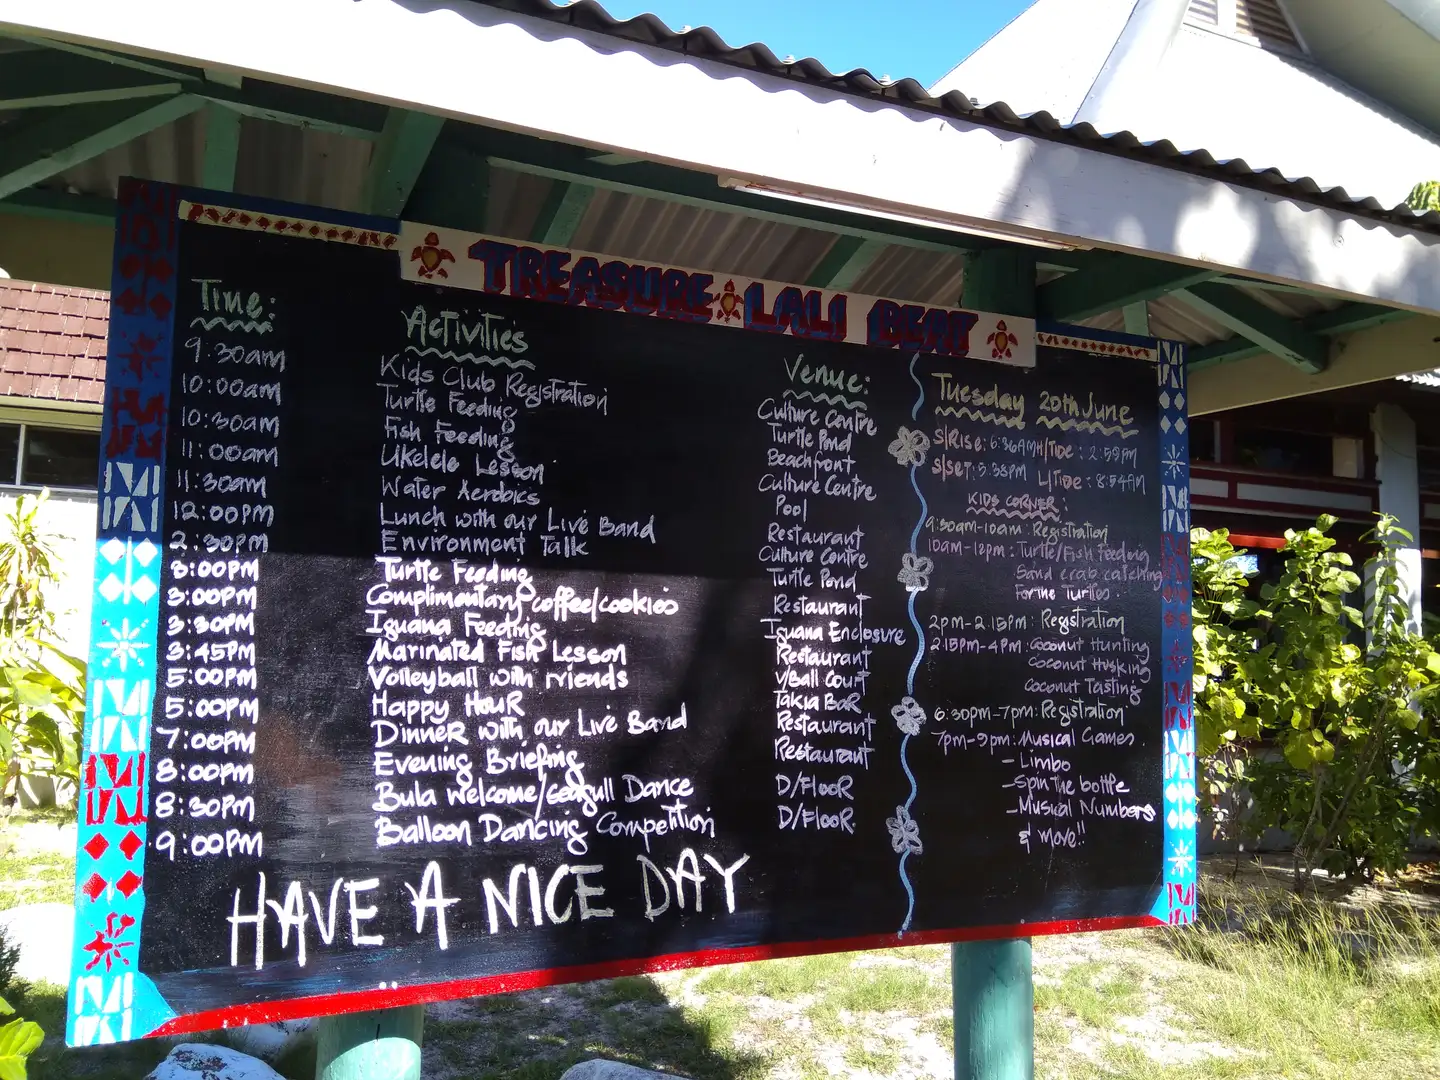 TREASURE LALI BEAT
Time: Activities Venue:
9.30am Kids Club Registration Culture Centre
10:00am Turtle Feeding Turtle Pond
10:30am Fish Feeding Beachfront
11:00am Ukelele Lesson Culture Centre
11:30am Water Aerobics Pool
12:00PM Lunch with our Live Band Restaurant
2:30PM Environment Talk Culture Centre
3:00PM Turtle Feeding Turtle Pond
3:00PM Complimentary coffee/cookies Restaurant
3:30PM Iguana Feeding Iguana Enclosure
3:45PM Marinated Fish Lesson Restaurant
5:00PM Volleyball with friends V/Ball Court
5:00PM Happy Hour Takia Bar
7:00PM Dinner with our Live Band Restaurant
8:00PM Evening Briefing Restaurant
8:30PM Bula Welcome/Seagull Dance D/Floor
9:00PM Balloon Dancing Competition D/Floor
HAVE A NICE DAY
Tuesday 20th June
S/Rise: 6:36AM H/Tide: 2:59PM
S/Set: 5:38PM L/Tide: 8:54AM
KIDS CORNER:
9:30am-10am: Registration
10am-12pm: Turtle/Fish Feeding
Sand crab catching
for the Turtles.
2pm-2.15pm: Registration
2:15pm-4pm: Coconut Hunting
Coconut Husking
Coconut Tasting
6:30pm-7pm: Registration
7pm-9pm: Musical Games
- Limbo
- Spin the bottle
- Musical Numbers
& more!!